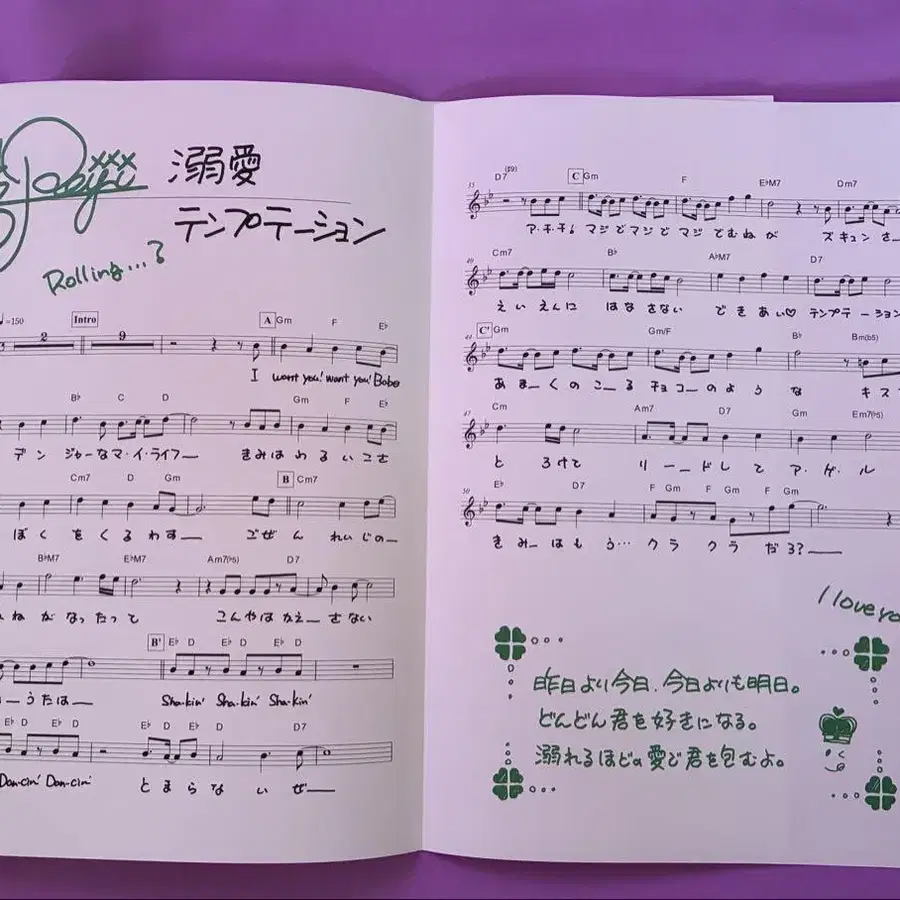 溺愛
テンプテーション
Rolling...?
=150
Intro
A Gm F E♭
2 9
I want you! want you! Babe
B♭ C D Gm F E♭
デン ジャーなマ・イ・ライフー きみはわるいこさ
Cm7 D Gm B Cm7
ぼくをくるわすー ごぜんれいじのー
B♭M7 E♭M7 Am7(♭5) D7
ねがなったって こんやはかえーさない
B' E♭ D E♭ D E♭ D
ーうたはー Shakin' Shakin' Shakin'
E♭ D E♭ D E♭ D E♭ D D7
Dancin' Dancin' とまらないぜー
35 D7 (♯9) C Gm F E♭M7 Dm7
ア・チ・チ! マジでマジでマジでむねが ズキュンさー
Cm7 B♭ A♭M7 D7
えいえんに はなさない できあい♡ テンプテーション
C' Gm Gm/F B♭ Bm(♭5)
あまーくのこーるチョコーのような キス
47 Cm Am7 D7 Gm Em7(♭5)
とろけて リーードして ア・ゲ・ル
50 E♭ D7 F Gm F Gm F Gm
きみーはもう… クラクラだろ?ー
昨日より今日、今日よりも明日。
どんどん君を好きになる。
溺れるほどの愛で君を包むよ。